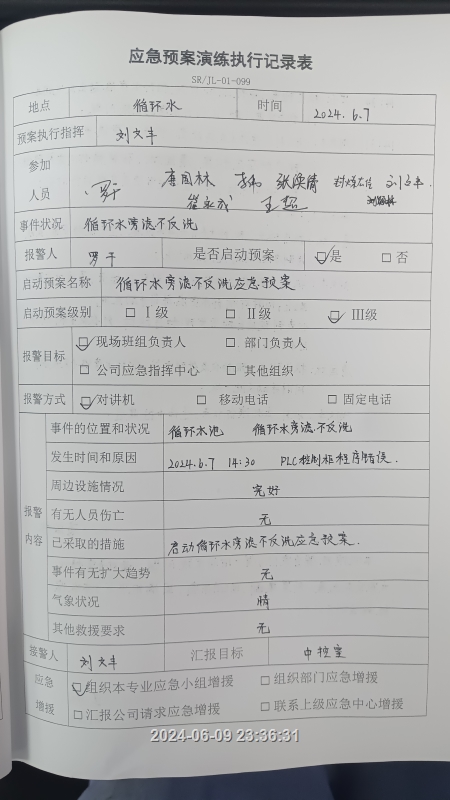 应急预案演练执行记录表
SR/JL-01-099
地点 循环水 时间 2024.6.7
预案执行指挥 刘文丰
参加人员 罗干 唐国林 李伟 张焕倩 刘文丰
崔永成 王超
事件状况 循环水旁滤不反洗
报警人 罗干 是否启动预案 ☑是 □否
启动预案名称 循环水旁滤不反洗应急预案
启动预案级别 □Ⅰ级 □Ⅱ级 ☑Ⅲ级
报警目标 ☑现场班组负责人 □部门负责人
□公司应急指挥中心 □其他组织
报警方式 ☑对讲机 □移动电话 □固定电话
报警内容 事件的位置和状况 循环水池 循环水旁滤不反洗
发生时间和原因 2024.6.7 14:30 PLC控制柜程序错误.
周边设施情况 完好
有无人员伤亡 无
已采取的措施 启动循环水旁滤不反洗应急预案.
事件有无扩大趋势 无
气象状况 晴
其他救援要求 无
接警人 刘文丰 汇报目标 中控室
应急增援 ☑组织本专业应急小组增援 □组织部门应急增援
□汇报公司请求应急增援 □联系上级应急中心增援
2024-06-09 23:36:31